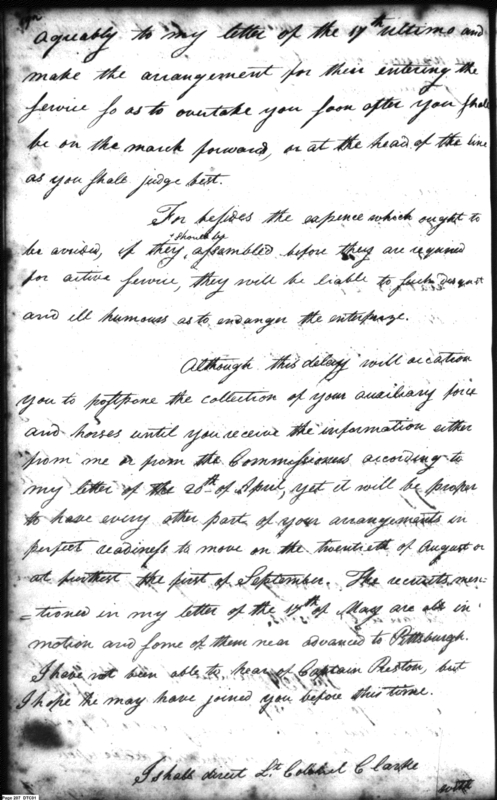 agreeably to my letter of the 17th ultimo and
make the arrangement for their entering the
service so as to overtake you soon after you shall
be on the march forward, or at the head of the line
as you shall judge best.
For besides the expence which ought to
be avoided, if they should be assembled before they are required
for active service, they will be liable to such disgust
and ill humours as to endanger the enterprize.
Although this delay will occation
you to postpone the collection of your auxiliary force
and horses until you receive the information either
from me or from the Commissioners according to
my letter of the 20th of April, yet it will be proper
to have every other part of your arrangements in
perfect readiness to move on the twentieth of August or
at furthest the first of September. The recruits men-
=tioned in my letter of the 17th of May are all in
motion and some of them near advanced to Pittsburgh.
I have not been able to hear of Captain Preston, but
I hope he may have joined you before this time.
I shall direct Lt. Colonel Clarke
with
Page 207 DTC01